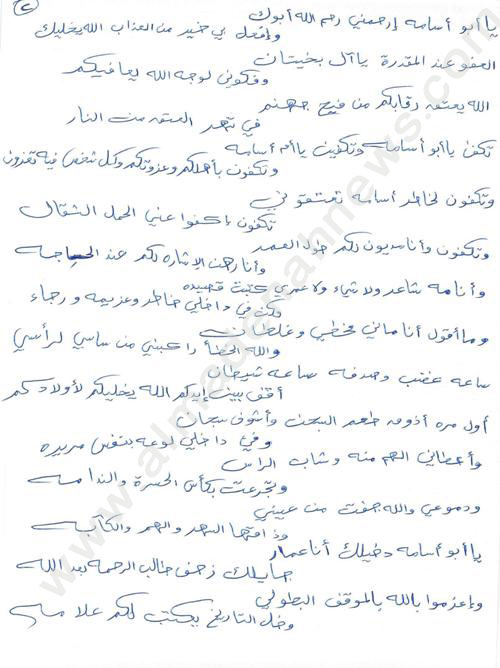 ٢
يا أبو أسامه إرحمني رحم الله أبوك
وإفعل بي خير من العذاب الله يخليك
العفو عند المقدرة يا آل بخيتان
وفكوني لوجه الله يعافيكم
الله يعتقه رقابكم من فيح جهنم
في شهر العتقه من النار
تكفى يا أبو أسامه وتكفين يا أم أسامه
وتكفون بأهلكم وعزوتكم وكل شخص فيه تعزون
وتكفون لخاطر أسامه تعتقوني
تكفون إكفوا عني الحمل الثقال
وتكفون وأنا مديون لكم طول العمر
وأنا رهن الإشاره لكم عند الحاجه
وأنا مه شاعر ولا شيء ولا عمري كتبت قصيده
لكن في داخلي خاطر وعزيمه ورجاء
وما أقول أنا ماني مخطي وغلطان
والله الخطأ راكبني من ساسي لرأسي
ساعه غضب وصدفه ساعه شيطان
أقف بين إيديكم الله يخليكم لأولادكم
أول مره أذوقه طعم السجن وأشوف سجان
وفي داخلي لوعه بنفس مريره
وأعطاني الهم منه وشاب الراس
وتجرعت بكأس الحسرة والندامه
ودموعي والله جفت من عيني
وذا فتها السهر والهم والكآبه
يا أبو أسامه دخيلك أنا عمار
جايلك زحف طالب الرحمة بعد الله
وإعزموا بالله بالموقف البطولي
وخل التاريخ يكتب لكم علامه
www.almadenahnews.com